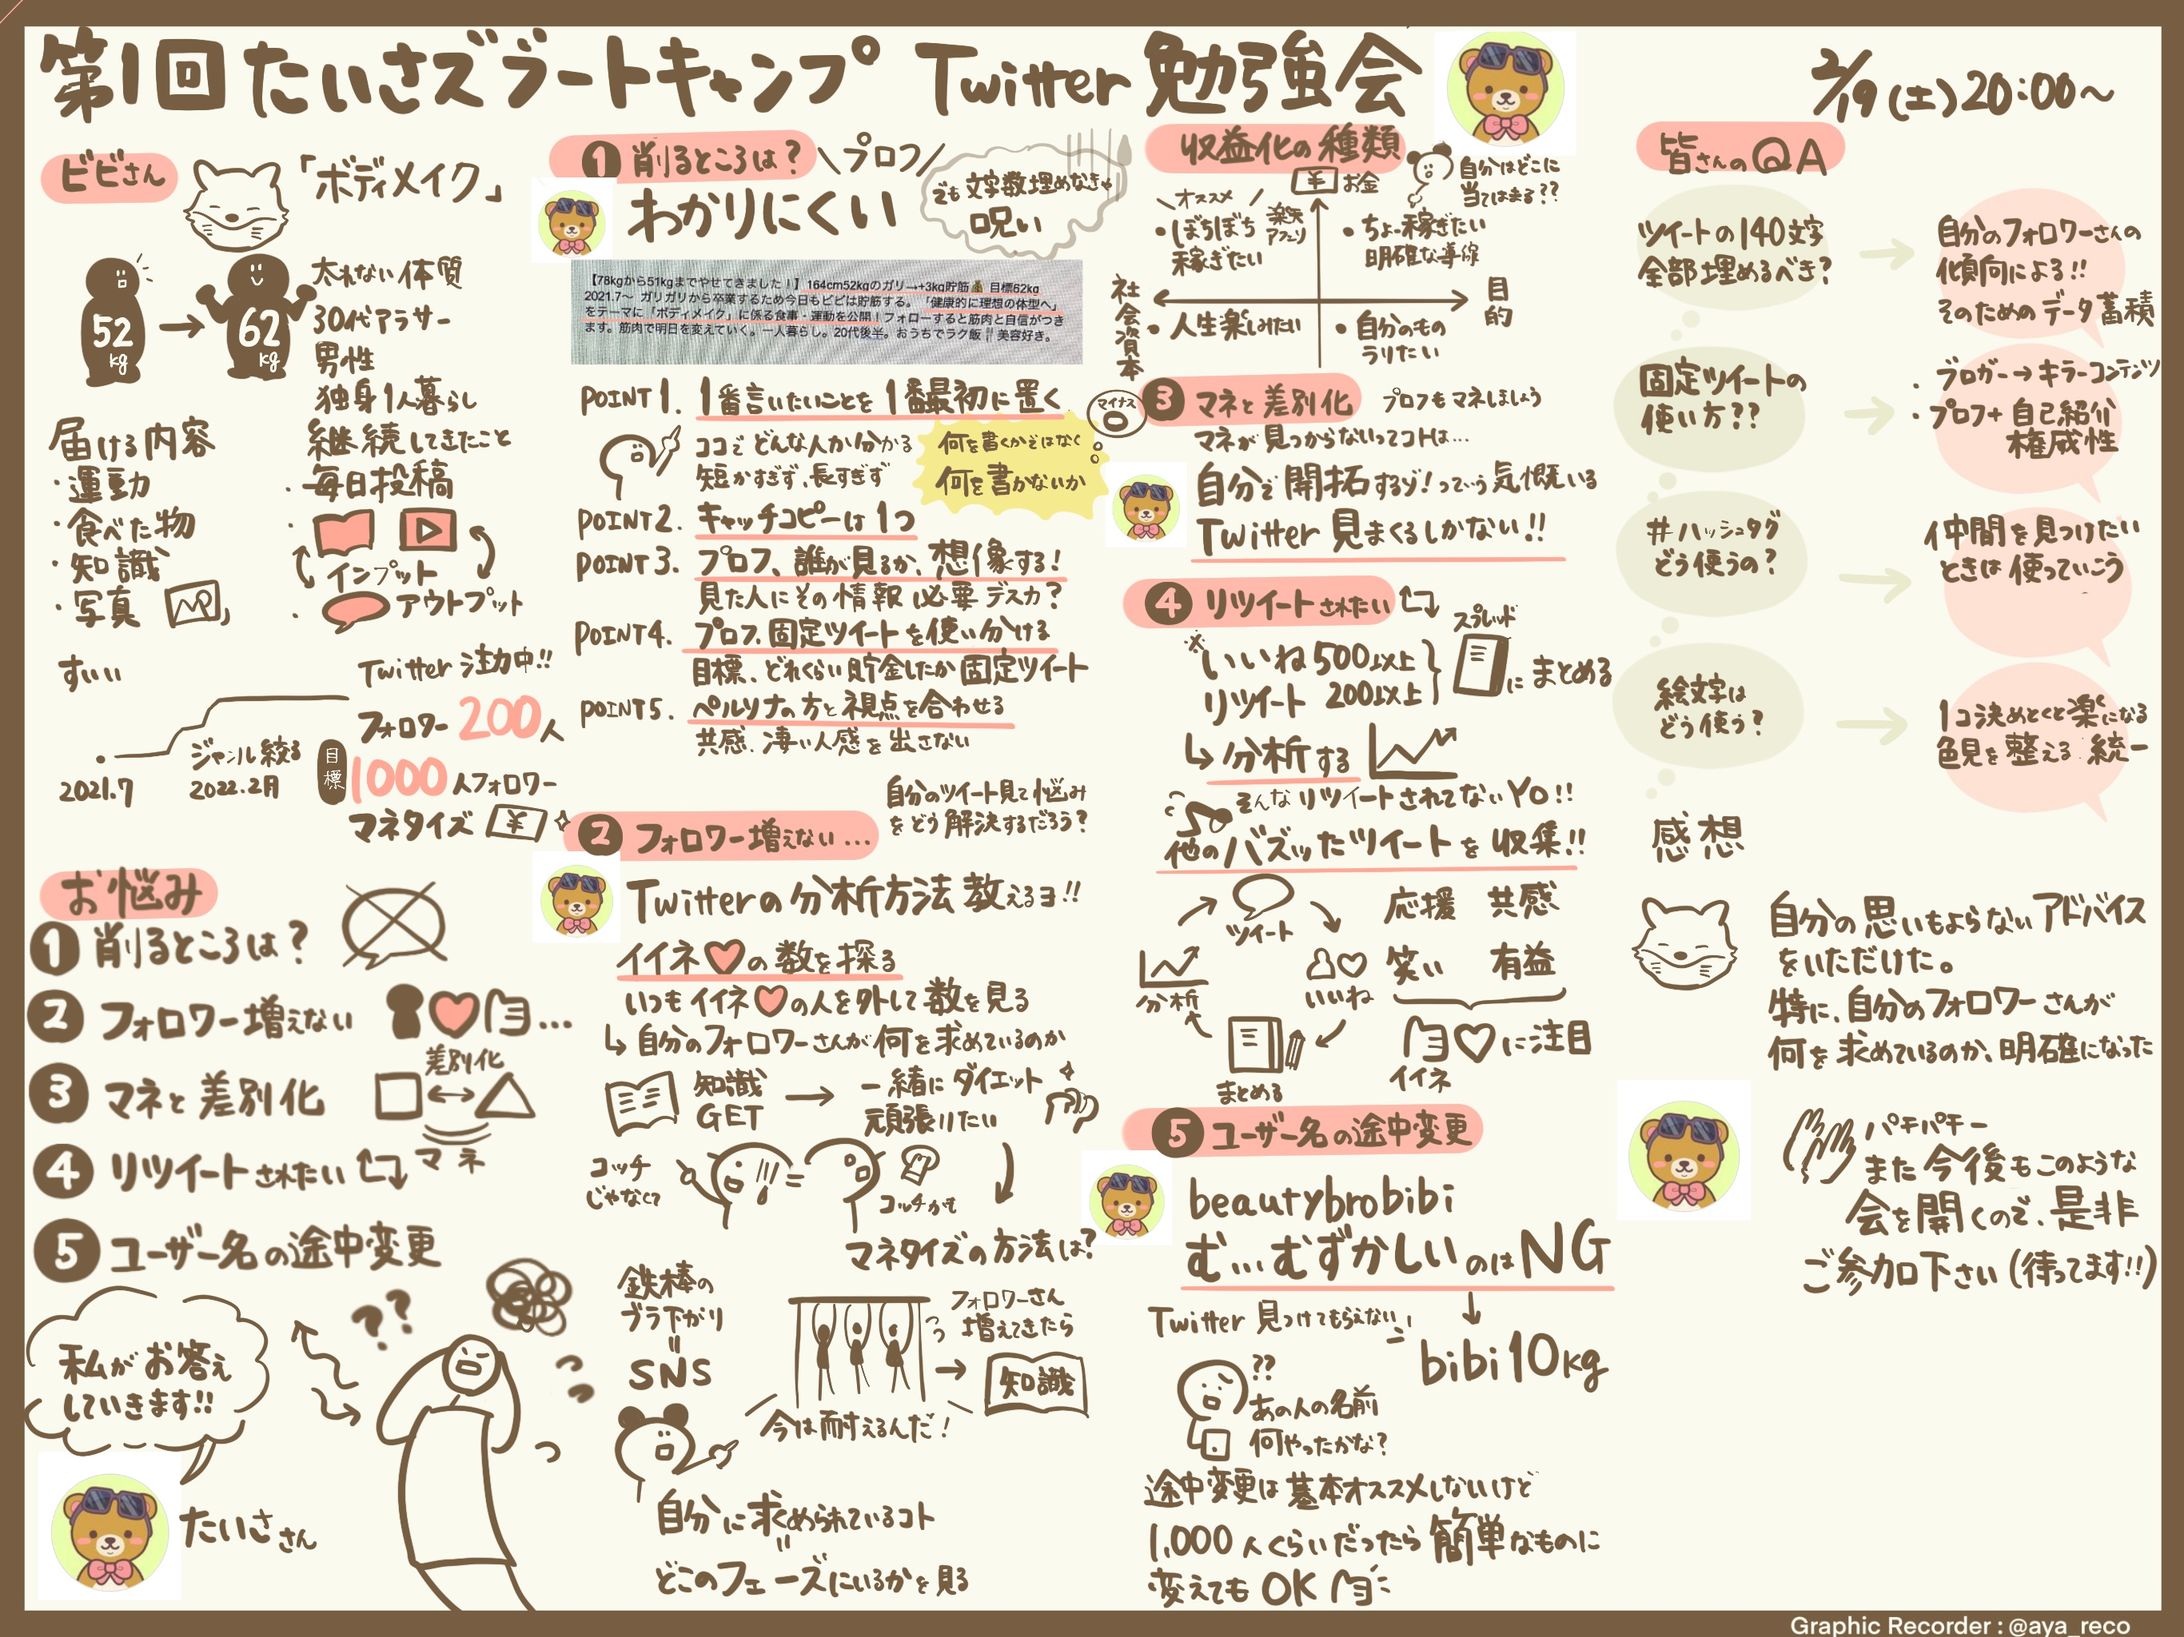 第1回 たいさズブートキャンプ Twitter 勉強会
2/19(土)20:00〜
ビビさん
「ボディメイク」
52
kg
62
kg
太れない体質
30代アラサー
男性
独身1人暮らし
届ける内容
・運動
・食べた物
・知識
・写真
継続してきたこと
・毎日投稿
インプット
アウトプット
Twitter 注力中!!
フォロワー 200人
目標
1000人フォロワー
マネタイズ ¥
2021.7
ジャンル絞る
2022.2月
お悩み
1 削るところは?
2 フォロワー増えない
3 マネと差別化
差別化
マネ
4 リツイートされたい
5 ユーザー名の途中変更
私がお答え
していきます!!
??
たいささん
1 削るところは?
\プロフ/
わかりにくい
でも文字数埋めなきゃ
呪い
【78kgから51kgまでやせてきました!】164cm52kgのガリ→+3kg貯筋💰目標62kg
2021.7〜 ガリガリから卒業するため今日もビビは貯筋する。「健康的に理想の体型へ」
をテーマに「ボディメイク」に係る食事・運動を公開!フォローすると筋肉と自信がつき
ます。筋肉で明日を変えていく。一人暮らし。20代後半。おうちでラク飯🍴美容好き。
POINT1. 1番言いたいことを1番最初に置く
ココでどんな人か分かる
短かすぎず、長すぎず
何を書くかではなく
何を書かないか
マイナス
POINT2. キャッチコピーは1つ
POINT3. プロフ、誰が見るか、想像する!
見た人にその情報必要デスカ?
POINT4. プロフ、固定ツイートを使い分ける
目標、どれくらい貯金したか固定ツイート
POINT5. ペルソナの方と視点を合わせる
共感、凄い人感を出さない
2 フォロワー増えない…
自分のツイート見て悩み
をどう解決するだろう?
Twitterの分析方法教えるヨ!!
イイネ♡の数を探る
いつもイイネ♡の人を外して数を見る
↳自分のフォロワーさんが何を求めているのか
知識
GET
→
一緒にダイエット
頑張りたい
コッチ
じゃなくて
コッチかも
マネタイズの方法は?
鉄棒の
ブラ下がり
=
SNS
フォロワーさん
増えてきたら
知識
今は耐えるんだ!
自分に求められているコト
=
どこのフェーズにいるかを見る
収益化の種類
自分はどこに
当てはまる??
\オススメ/
¥ お金
・ぼちぼち
稼ぎたい
楽天
アフィリ
・ちょー稼ぎたい
明確な導線
社会資本
目的
・人生楽しみたい
・自分のもの
うりたい
3 マネと差別化
プロフもマネしましょう
マネが見つからないってコトは…
自分で開拓するゾ!っていう気概いる
Twitter 見まくるしかない!!
4 リツイートされたい
※いいね500以上
リツイート 200以上
スプレッド
にまとめる
↳分析する
そんなリツイートされてないYO!!
他のバズッたツイートを収集!!
ツイート
いいね
まとめる
分析
応援 共感
笑い 有益
♡に注目
イイネ
5 ユーザー名の途中変更
beautybrobibi
む…むずかしいのはNG
Twitter 見つけてもらえない
bibi10kg
??
あの人の名前
何やったかな?
途中変更は基本オススメしないけど
1,000人くらいだったら簡単なものに
変えてもOK
皆さんのQA
ツイートの140文字
全部埋めるべき?
→
自分のフォロワーさんの
傾向による!!
そのためのデータ蓄積
固定ツイートの
使い方??
→
・ブロガー→キラーコンテンツ
・プロフ+自己紹介
権威性
#ハッシュタグ
どう使うの?
→
仲間を見つけたい
ときは使っていこう
絵文字は
どう使う?
→
1コ決めとくと楽になる
色見を整える 統一
感想
自分の思いもよらないアドバイス
をいただけた。
特に、自分のフォロワーさんが
何を求めているのか、明確になった
パチパチー
また今後もこのような
会を開くので、是非
ご参加下さい(待ってます!!)
Graphic Recorder : @aya_reco